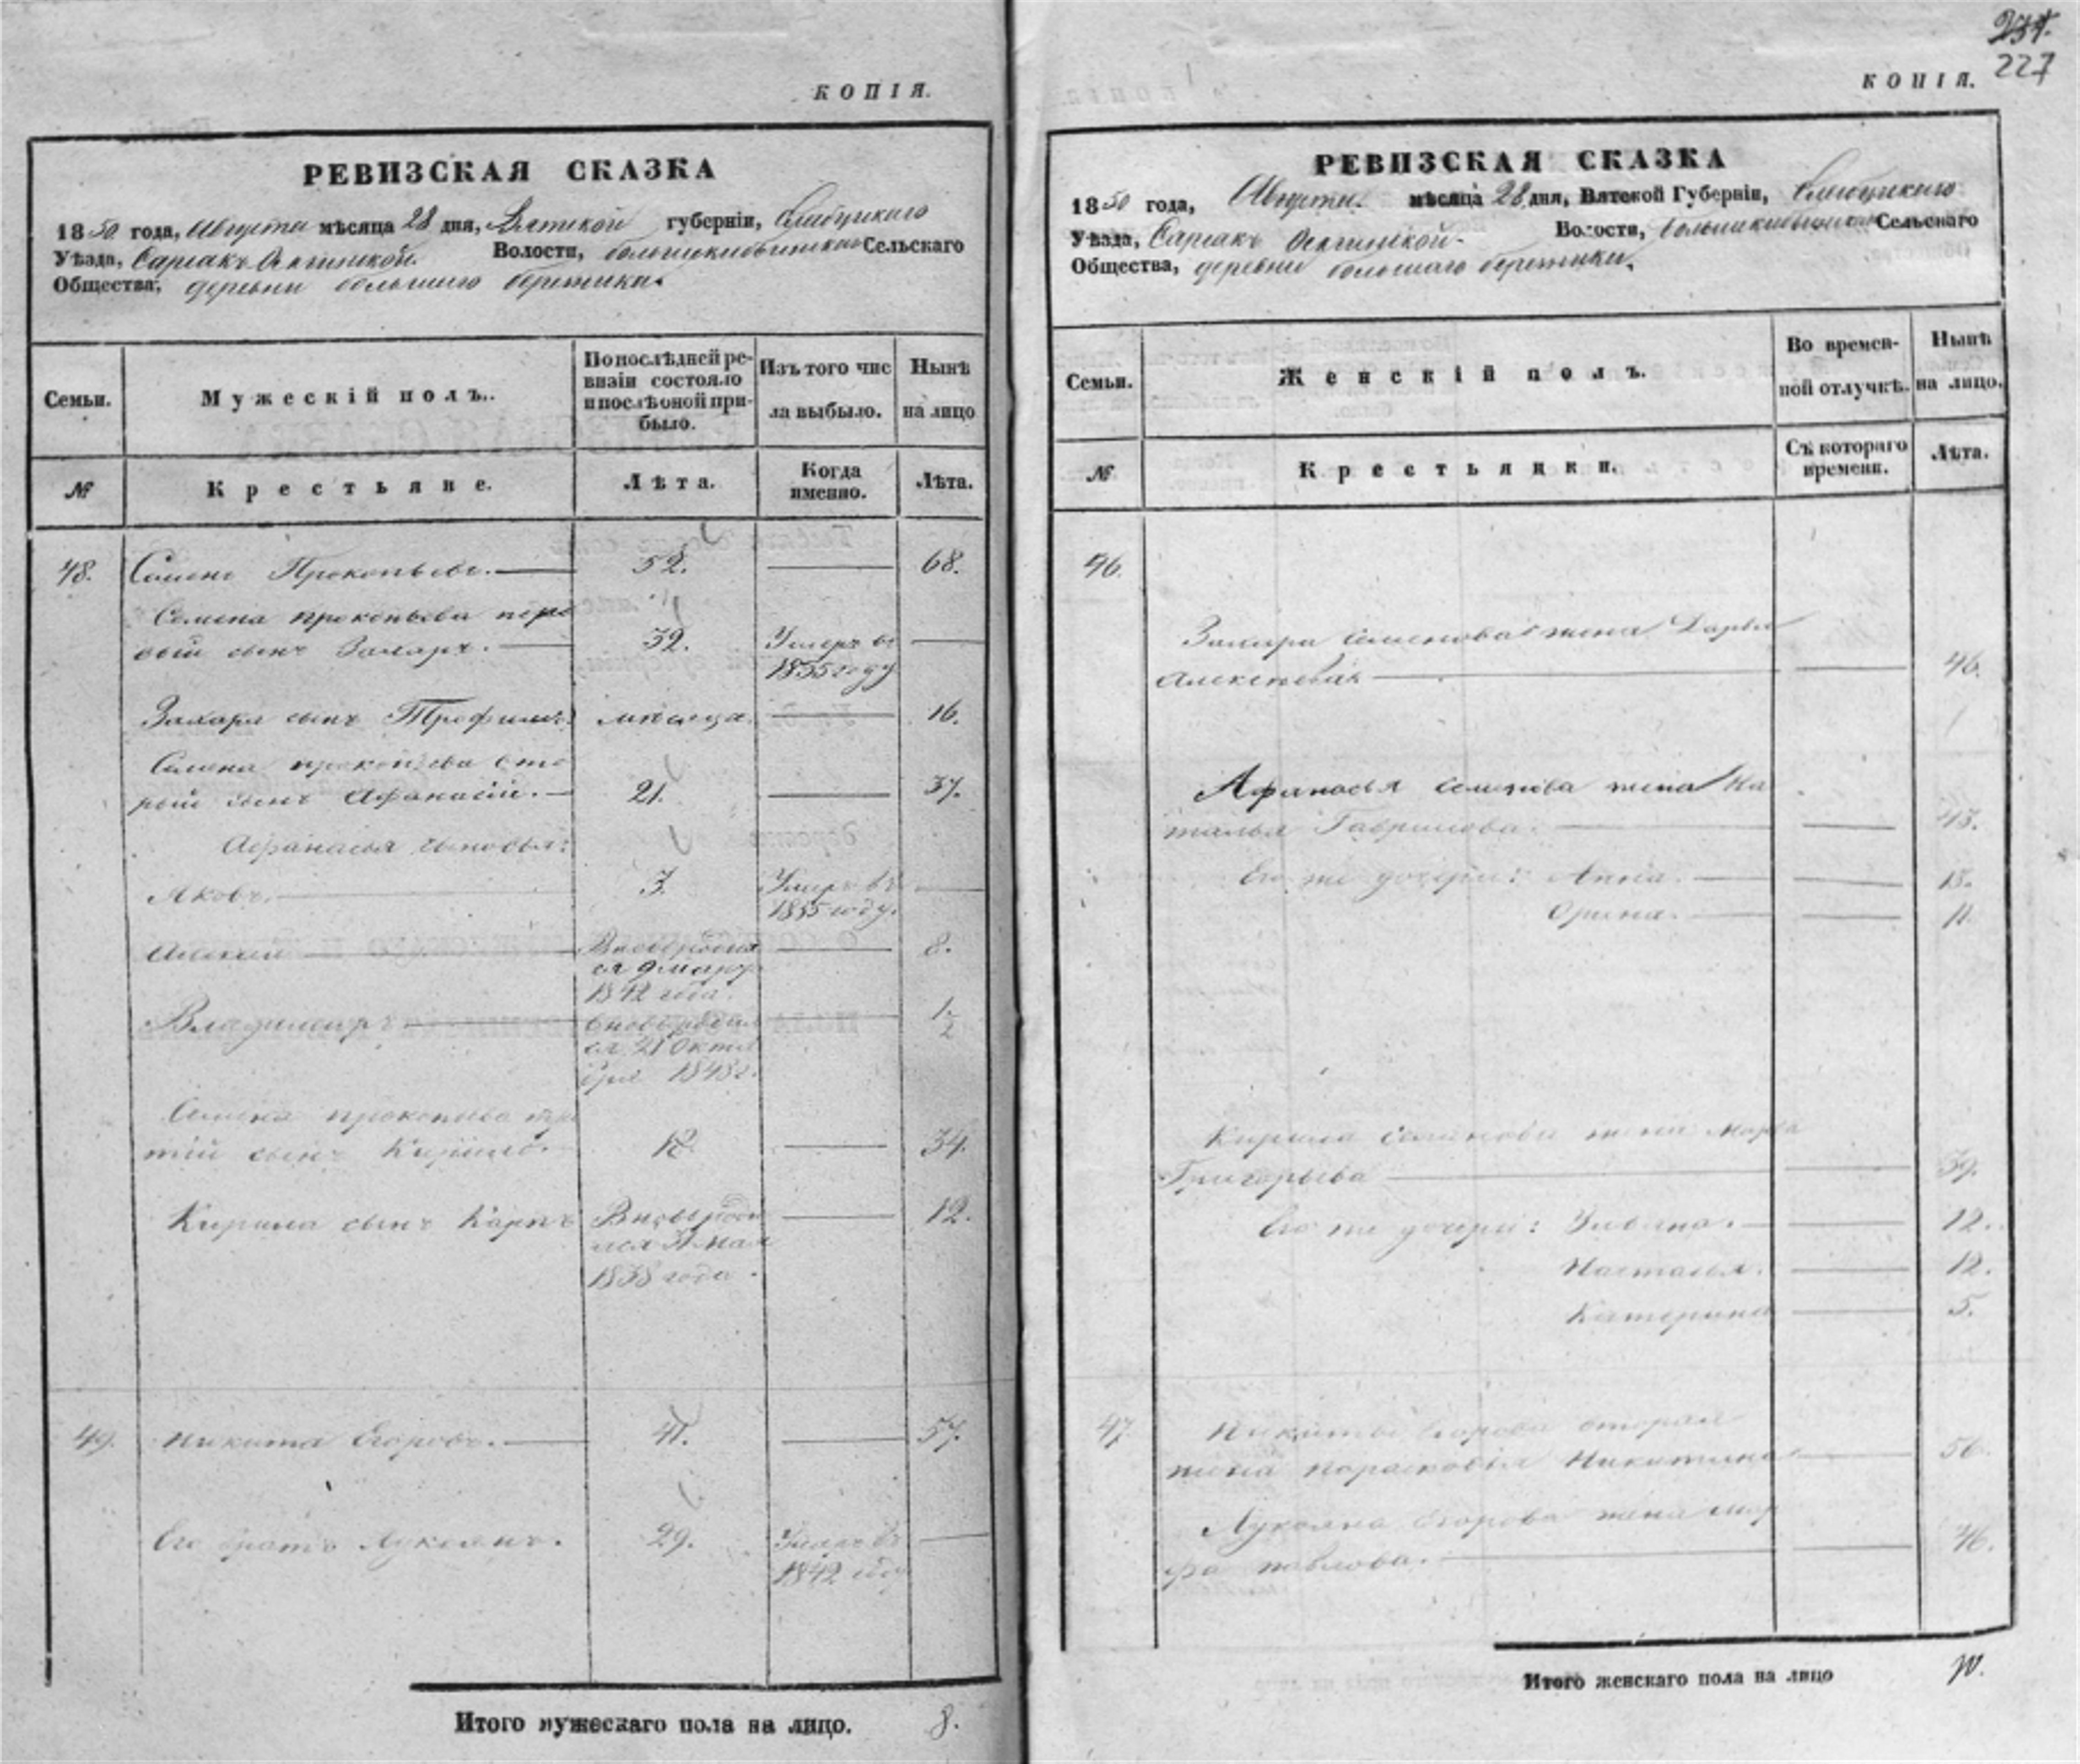 КОПІЯ.
РЕВИЗСКАЯ СКАЗКА
1850 года, Августа мѣсяца 28 дня, Вятской губерніи,
Уѣзда, Волости, Сельскаго
Общества, деревни большаго
Семьи. Мужескій полъ. По послѣдней ревизіи состояло и послѣ оной прибыло. Изъ того числа выбыло. Нынѣ на лицо
№ Крестьяне. Лѣта. Когда именно. Лѣта.
48. Семенъ Прокопьевъ. 52. 68.
Семена прокопьева пер
вый сынъ Захаръ. 32. Умеръ въ
1835 году
Захара сынъ Трофимъ. мѣсяца. 16.
Семена прокопьева вто
рый сынъ Афанасій. 21. 37.
Афанасья сыновья:
Яковъ. 3. Умеръ въ
1835 году.
Алексей Вновь родил
ся 9 мар
1842 года. 8.
Владимиръ вновь родил
ся 21 Октя
бря 1848 г. 1½
Семена прокопьева тре
тій сынъ Кирило. 18. 34.
Кирила сынъ Карпъ Вновь роди
лся мая
1838 года. 12.
49. Никита Егоровъ. 41. 57.
Его братъ Лукоянъ. 29. Умеръ въ
1842 году
Итого мужескаго пола на лицо. 8.
231.
227
КОПІЯ.
РЕВИЗСКАЯ СКАЗКА
1850 года, Августа мѣсяца 28 дня, Вятской Губерніи,
Уѣзда, Волости, Сельскаго
Общества, деревни большаго
Семьи. Женскій полъ. Во временной отлучкѣ. Нынѣ на лицо.
№ Крестьянки. Съ котораго времени. Лѣта.
46.
Захара Семенова жена Дарья
Алексеева 46.
Афанасья семенова жена На
талья Гаврилова. 43.
Его же дочери: Анна. 15.
Орина. 11.
Кирила семенова жена Марфа
Григорьева 39.
Его же дочери: Ульяна. 12.
Настасья. 12.
Катерина 5.
47. Никиты Егорова вторая
жена Парасковья Никитина 50.
Лукояна Егорова жена Мар
фа павлова. 46.
Итого женскаго пола на лицо 10.